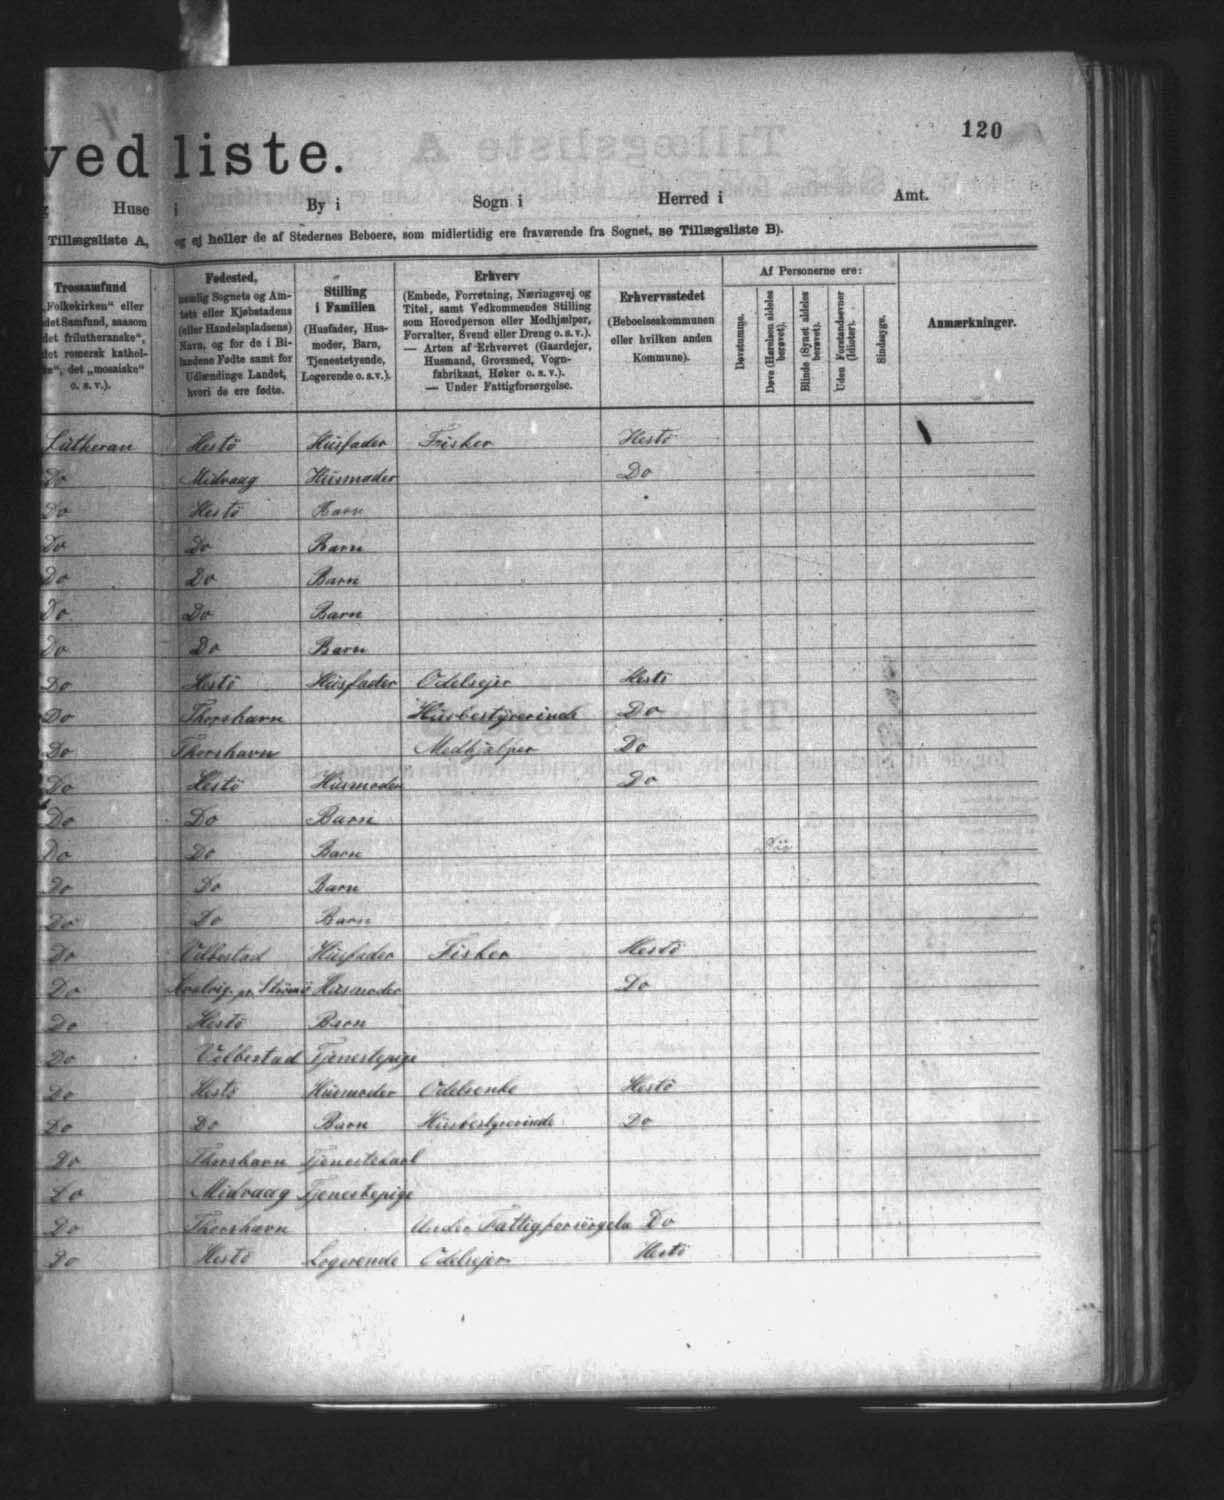 120
vedliste.
Huse i By i Sogn i Herred i Amt.
Tillægsliste A, og ej heller de af Stedernes Beboere, som midlertidig ere fraværende fra Sognet, se Tillægsliste B).
Trossamfund
„Folkekirken“ eller
det Samfund, saasom
det frilutheranske“,
det romersk kathol-
ke“, det „mosaiske“
o. s. v.).
Fødested,
nemlig Sognets og Am-
tets eller Kjøbstadens
(eller Handelspladsens)
Navn, og for de i Bi-
landene Fødte samt for
Udlændinge Landet,
hvori de ere fødte.
Stilling
i Familien
(Husfader, Hus-
moder, Barn,
Tjenestetyende,
Logerende o. s. v.).
Erhverv
(Embede, Forretning, Næringsvej og
Titel, samt Vedkommendes Stilling
som Hovedperson eller Medhjælper,
Forvalter, Svend eller Dreng o. s. v.).
— Arten af Erhvervet (Gaardejer,
Husmand, Grovsmed, Vogn-
fabrikant, Høker o. s. v.).
— Under Fattigforsørgelse.
Erhvervsstedet
(Beboelseskommunen
eller hvilken anden
Kommune).
Af Personerne ere:
Døvstumme.
Døve (Hørelsen aldeles berøvet).
Blinde (Synet aldeles berøvet).
Uden Forstandsevner (Idioter).
Sindssyge.
Anmærkninger.
Lutheran Hestö Husfader Fisker Hestö
Do Midvaag Husmoder Do
Do Hestö Barn
Do Do Barn
Do Do Barn
Do Do Barn
Do Do Barn
Do Hestö Husfader Odelsejer Hestö
Do Thorshavn Husbestyrerinde Do
Do Thorshavn Medhjælper Do
Do Hestö Husmoder Do
Do Do Barn
Do Do Barn
Do Do Barn
Do Do Barn
Do Velbestad Husfader Fisker Hestö
Do Strömö Husmoder Do
Do Hestö Barn
Do Velbestad Tjenestepige
Do Hestö Husmoder Odelsenke Hestö
Do Do Barn Husbestyrerinde Do
Do Thorshavn Tjenestekarl
Do Midvaag Tjenestepige
Do Thorshavn Under Fattigforsörgels Do
Do Hestö Logerende Odelsejer Hestö